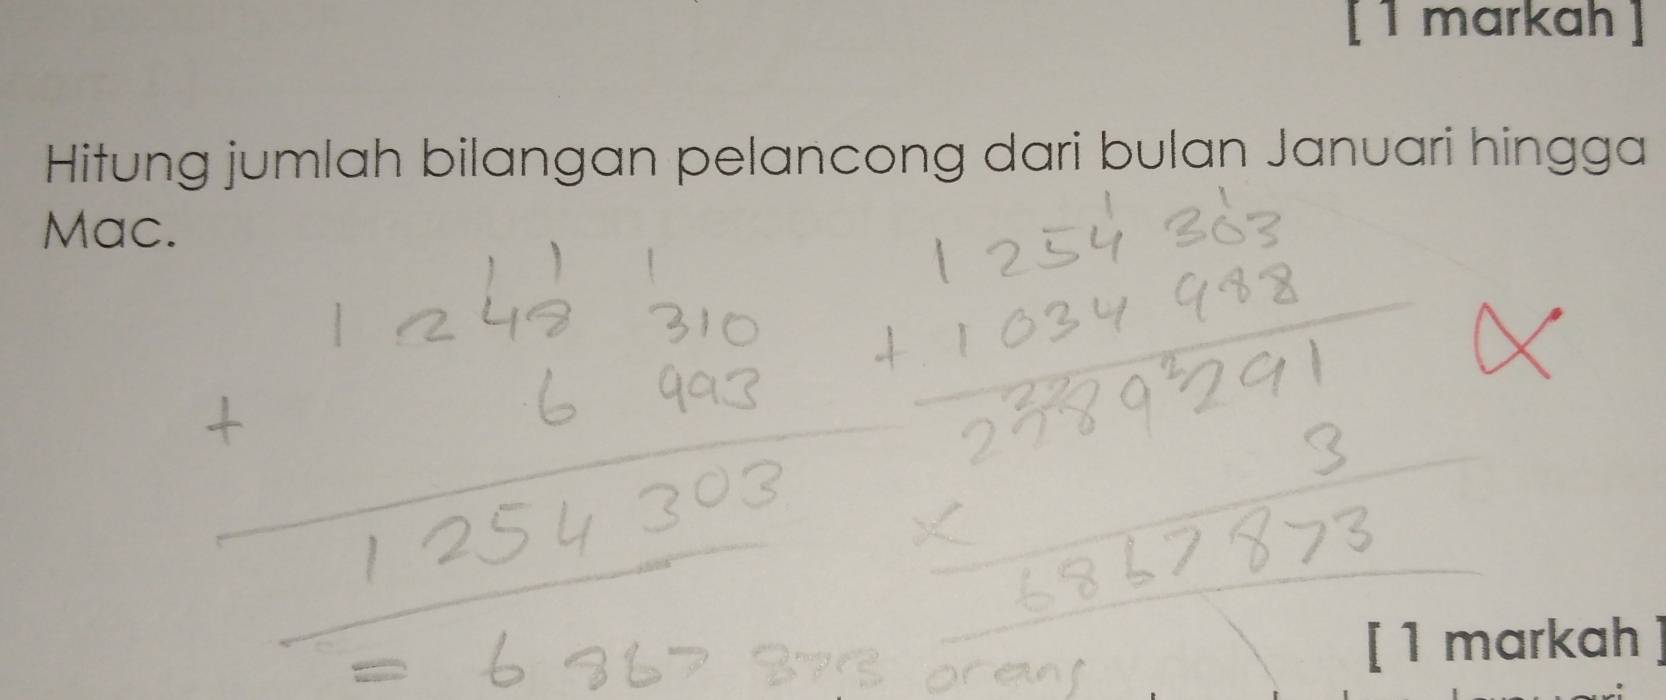 [ 1 markah ]
Hitung jumlah bilangan pelancong dari bulan Januari hingga
Mac.
1 1 1
1 248 310
+ 6 993
1 254 303
1 1
1 254 303
+ 1 034 988
2 289 291
× 3
6 867 873
= 6 867 873 orang
[ 1 markah ]